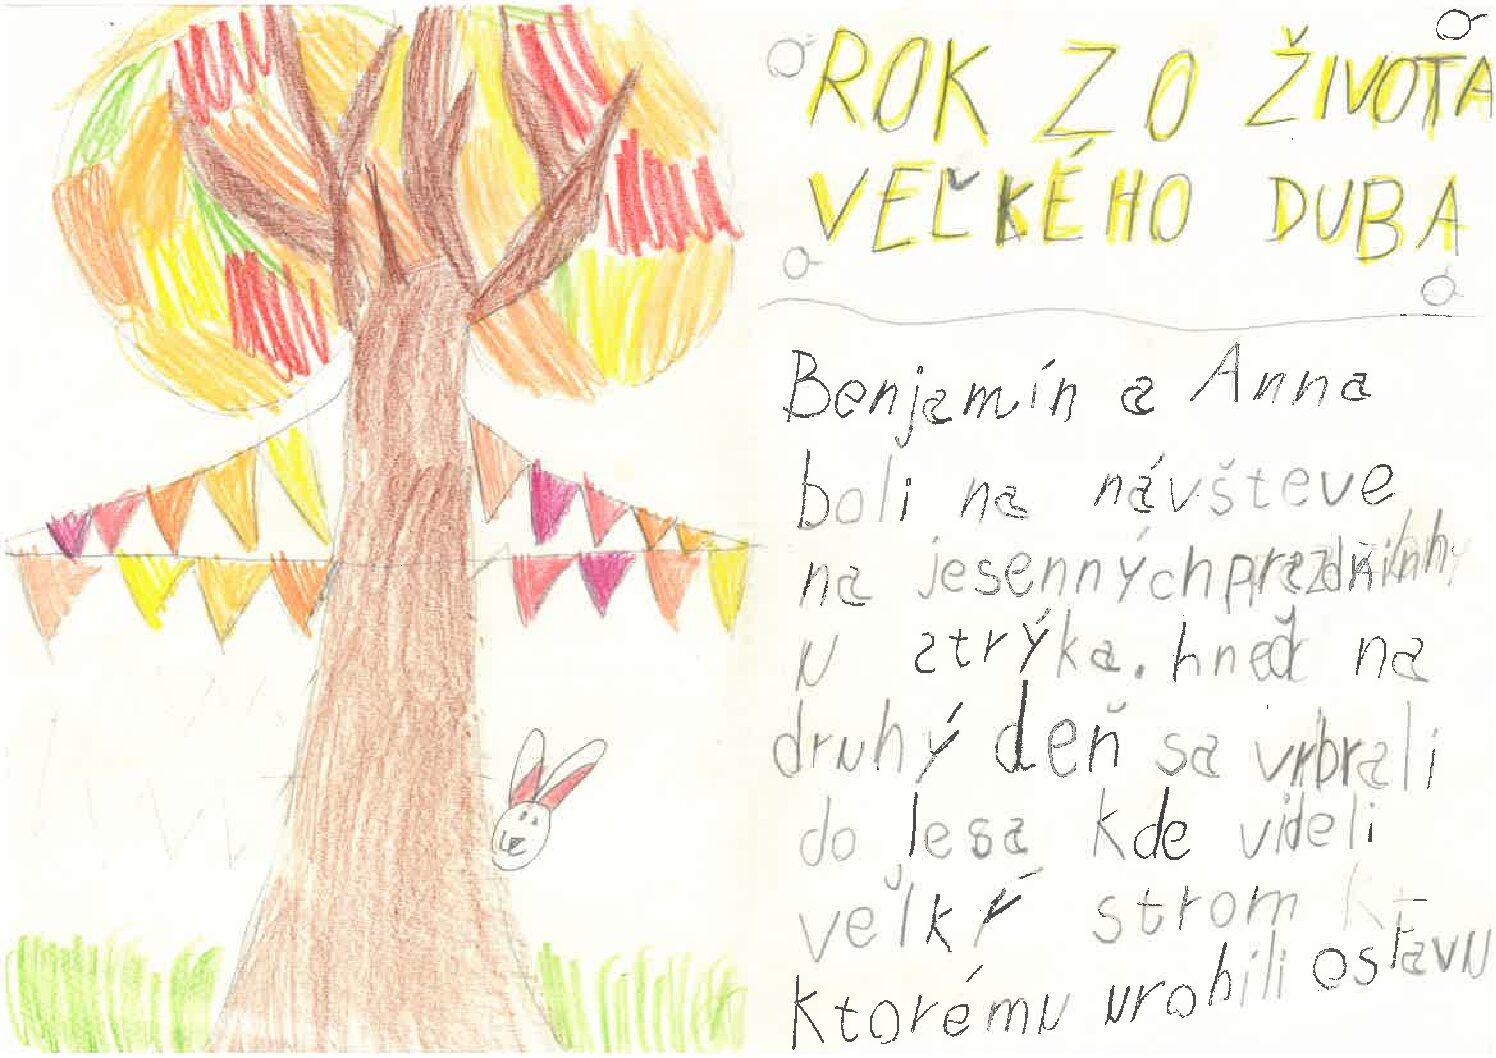 ROK ZO ŽIVOTA
VEĽKÉHO DUBA
Benjamín a Anna
boli na návšteve
na jesenných prazdninh
u strýka. hneď na
druhý deň sa vrbrali
do lesa kde videli
veľký strom kt
ktorému urobili oslavu